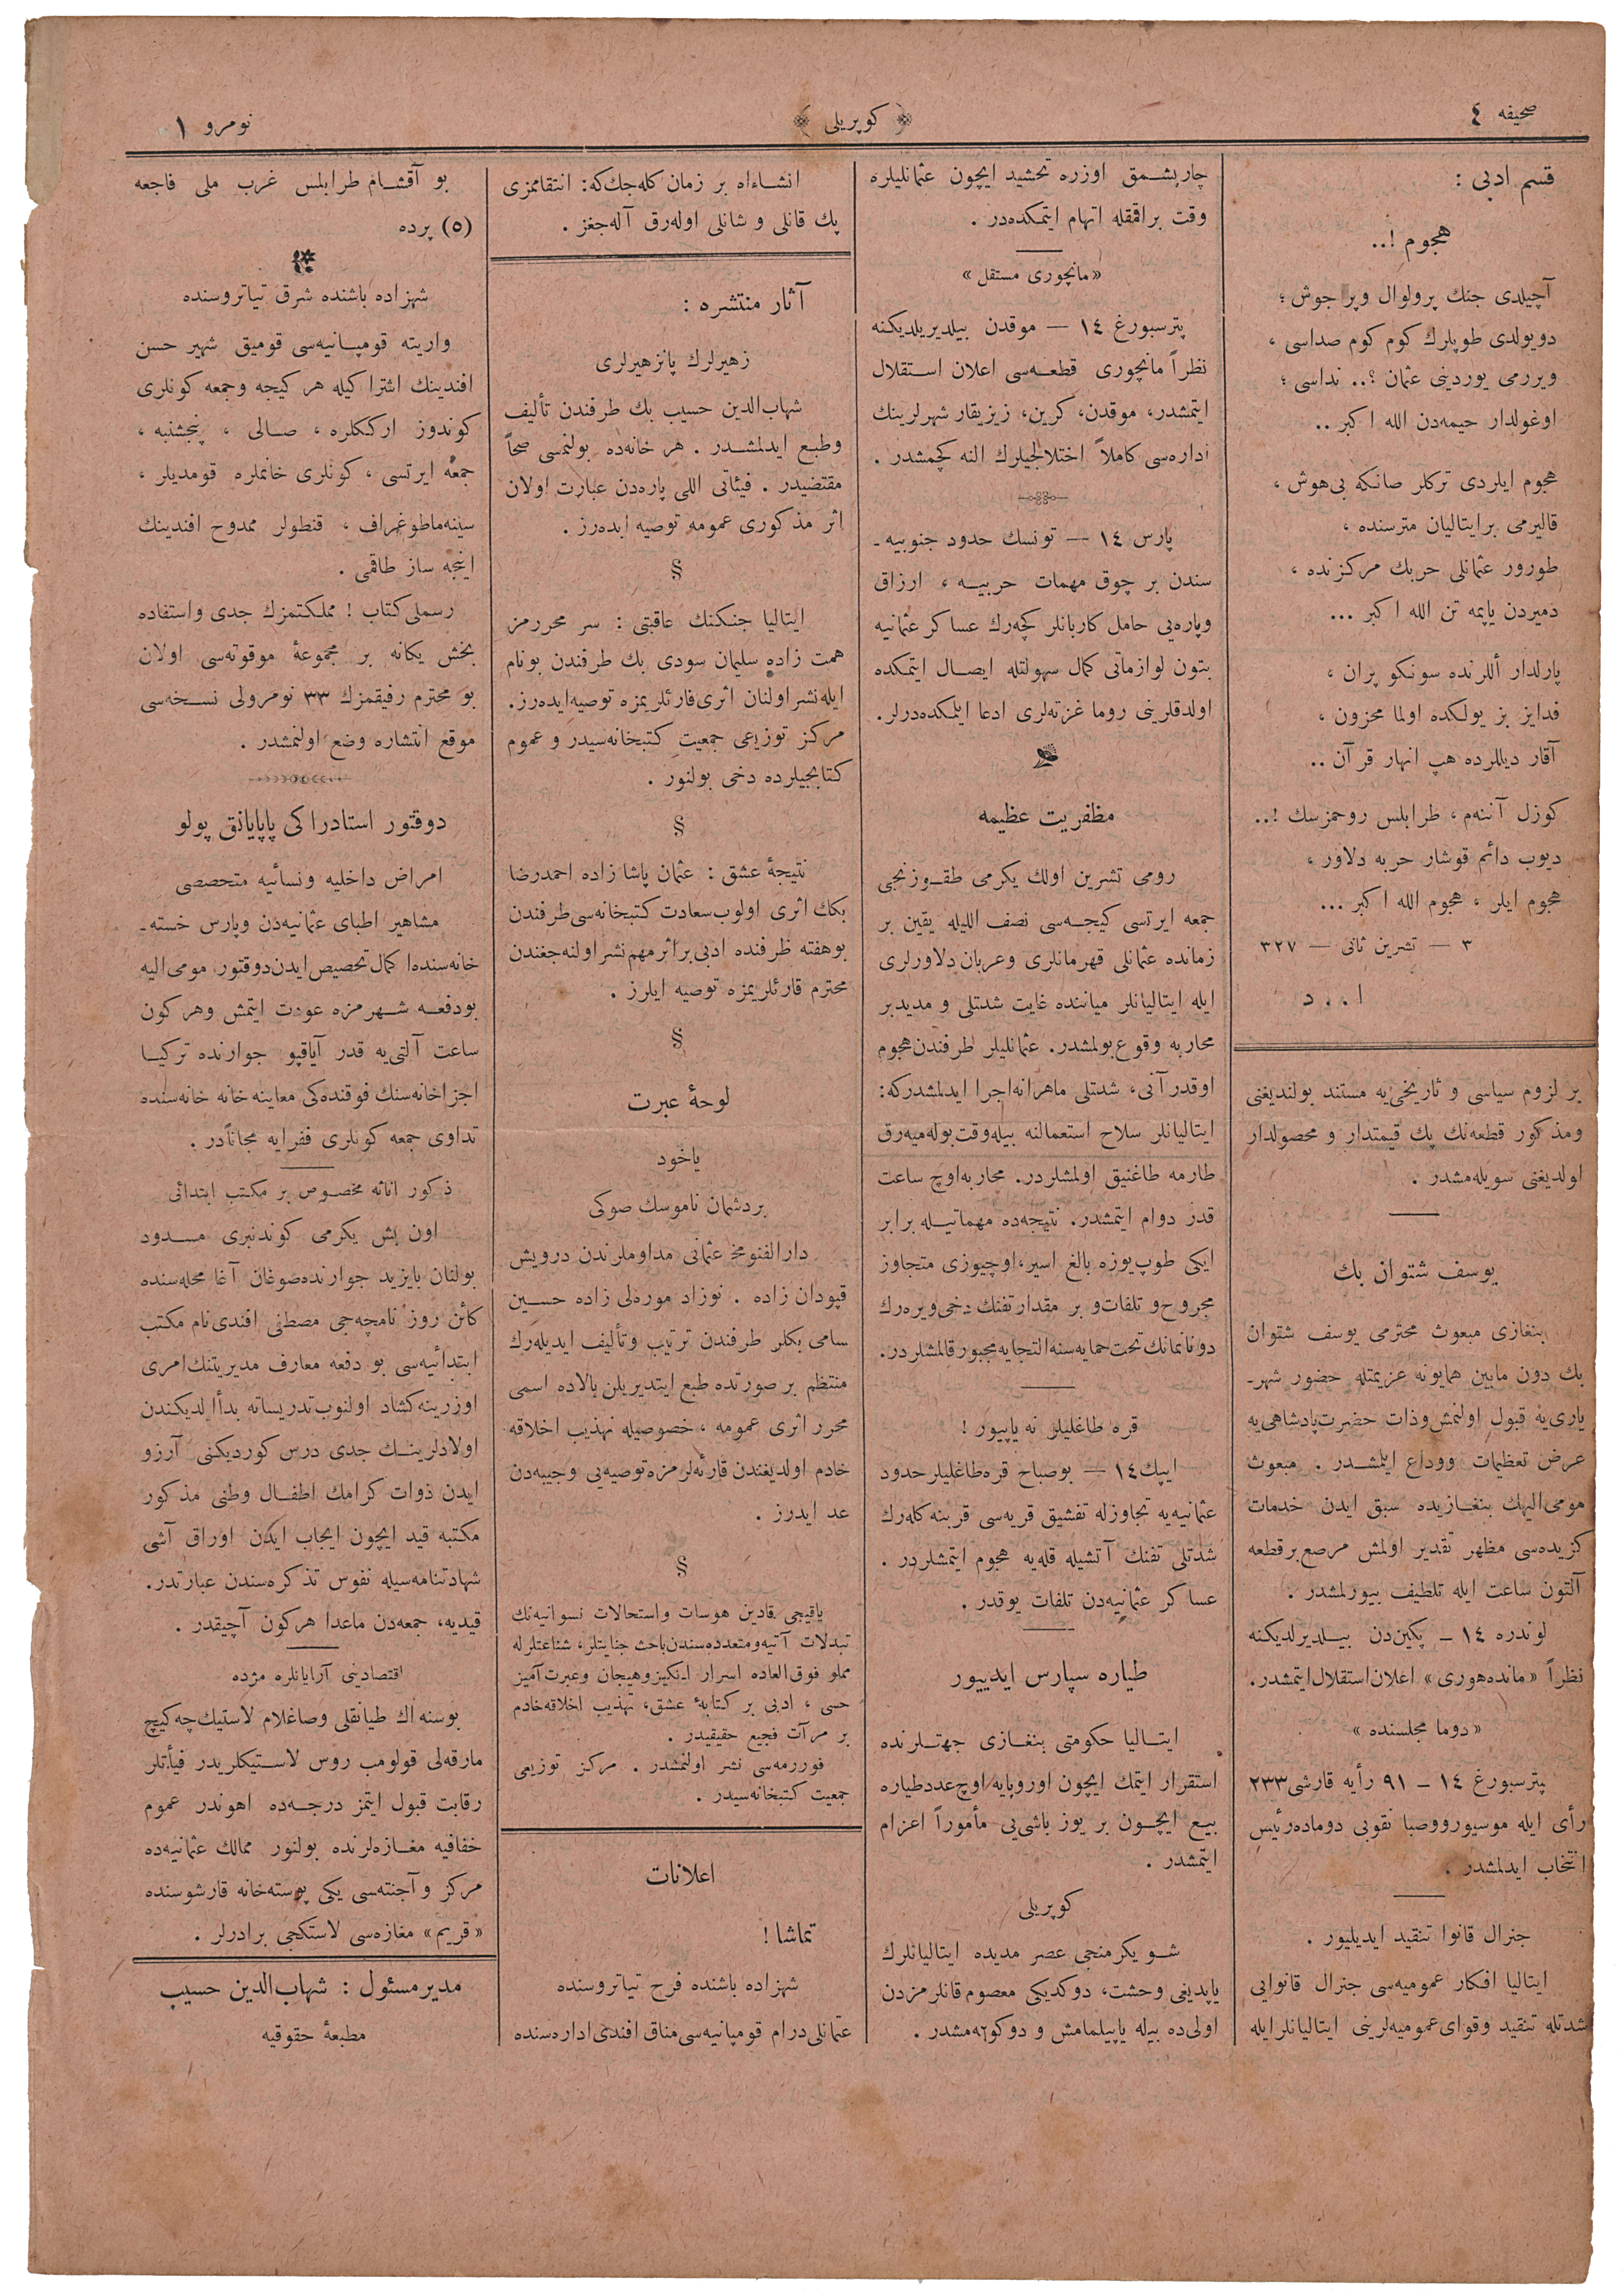 صحیفه ٤
كوپریلی
نومرو ١
قسم ادبی :
هجوم !..
آچیلدی جنك پرولوال وپر جوش ؛
دویولدی طوپلرك كوم كوم صداسی ،
ویررمی یوردینی عثمان ؟.. نداسی ؛
اوغولدار حیمه‌دن الله اكبر ..
هجوم ایلردی تركلر صانكه بی‌هوش ،
قالیرمی برایتالیان مترسنده ،
طورور عثمانلی حربك مركزنده ،
دمیردن یاپمه تن الله اكبر ...
پارلدار أللرنده سونكو پران ،
فدایز بز یولكده اولما محزون ،
آقار دیللرده هپ انهار قرآن ..
كوزل آننه‌م ، طرابلس روحمزسك !..
دیوب دائم قوشار حربه دلاور ،
هجوم ایلر ، هجوم الله اكبر ...
٣ — تشرین ثانی — ٣٢٧
ا . . د
بر لزوم سیاسی و تاریخی‌یه مستند بولندیغنی
ومذكور قطعه‌نك پك قیمتدار و محصولدار
اولدیغنی سویله‌مشدر .
یوسف شتوان بك
بنغازی مبعوث محترمی یوسف شتوان
بك دون مابین همایونه عزیمتله حضور شهر-
یاری‌یه قبول اولنمش وذات حضرت پادشاهی‌یه
عرض تعظیمات ووداع ایلمشدر . مبعوث
مومی‌الیهك بنغازیده سبق ایدن خدمات
كزیده‌سی مظهر تقدیر اولمش مرصع برقطعه
آلتون ساعت ایله تلطیف بیورلمشدر .
لوندره ١٤ – پكین‌دن بیلدیرلدیكنه
نظراً «مانده‌هوری» اعلان استقلال ایتمشدر .
«دوما مجلسنده»
پترسبورغ ١٤ – ٩١ رأیه قارشی ٢٣٣
رأی ایله موسیورووصبا نقوبی دوماده رئیس
انتخاب ایدلمشدر .
جنرال قانوا تنقید ایدیلیور .
ایتالیا افكار عمومیه‌سی جنرال قانوایی
شدتله تنقید وقوای عمومیه‌لرینی ایتالیانلرایله
چارپشمق اوزره تحشید ایچون عثمانلیلره
وقت براقمقله اتهام ایتمكده‌در .
«مانچوری مستقل»
پترسبورغ ١٤ — موقدن بیلدیریلدیكنه
نظراً مانچوری قطعه‌سی اعلان استقلال
ایتمشدر، موقدن، كرین، زیزیقار شهرلرینك
اداره‌سی كاملاً اختلالجیلرك النه كچمشدر .
پارس ١٤ — تونسك حدود جنوبیه-
سندن بر چوق مهمات حربیه ، ارزاق
وپاره‌یی حامل كاربانلر كچه‌رك عساكر عثمانیه
بتون لوازماتی كمال سهولتله ایصال ایتمكده
اولدقلرینی روما غزته‌لری ادعا ایلمكده‌درلر.
مظفریت عظیمه
رومی تشرین اولك یكرمی طقوزنجی
جمعه ایرتسی كیجه‌سی نصف اللیله یقین بر
زمانده عثمانلی قهرمانلری وعربان دلاورلری
ایله ایتالیانلر میاننده غایت شدتلی و مدید بر
محاربه وقوع بولمشدر. عثمانلیلر طرفندن هجوم
اوقدرآنی، شدتلی ماهرانه اجرا ایدلمشدركه:
ایتالیانلر سلاح استعمالنه بیله وقت بوله‌میه‌رق
طارمه طاغنیق اولمشلردر. محاربه اوچ ساعت
قدر دوام ایتمشدر. نتیجه‌ده مهماتیله برابر
ایكی طوپ یوزه بالغ اسیر، اوچیوزی متجاوز
مجروح و تلفات و بر مقدار تفنك دخی ویره‌رك
دونانمانك تحت حمایه‌سنه التجایه مجبور قالمشلردر.
قره طاغلیلر نه یاپیور !
ایپك ١٤ — بوصباح قره‌طاغلیلر حدود
عثمانیه‌یه تجاوزله تفشیق قریه‌سی قربنه كله‌رك
شدتلی تفنك آتشیله قله‌یه هجوم ایتمشلردر .
عساكر عثمانیه‌دن تلفات یوقدر .
طیاره سپارس ایدییور
ایتالیا حكومتی بنغازی جهتلرنده
استقرار ایتمك ایچون اوروپایه اوچ عدد طیاره
بیع ایچون بر یوز باشی‌یی مأموراً اعزام
ایتمشدر .
كوپریلی
شو یكرمنجی عصر مدیده ایتالیانلرك
یاپدیغی وحشت، دوكدیكی معصوم قانلر مزدن
اولی‌ده بیله یاپیلمامش و دوكوله‌مشدر .
انشاءاه بر زمان كله‌جك كه: انتقاممزی
پك قانلی و شانلی اوله‌رق آله‌جغز .
آثار منتشره :
زهیرلرك پانزهیرلری
شهاب‌الدین حسیب بك طرفندن تألیف
وطبع ایدلمشدر . هر خانه‌ده بولنمسی صحاً
مقتضیدر . فیئاتی اللی پاره‌دن عبارت اولان
اثر مذكوری عمومه توصیه ایده‌رز .
§
ایتالیا جنكنك عاقبتی : سر محررمز
همت زاده سلیمان سودی بك طرفندن بونام
ایله نشر اولنان اثری قارئلریمزه توصیه ایده‌رز.
مركز توزیعی جمعیت كتبخانه‌سیدر و عموم
كتابجیلرده دخی بولنور .
§
نتیجهٔ عشق : عثمان پاشا زاده احمدرضا
بكك اثری اولوب سعادت كتبخانه‌سی طرفندن
بوهفته ظرفنده ادبی بر اثر مهم نشر اولنه جغندن
محترم قارئلریمزه توصیه ایلرز .
§
لوحهٔ عبرت
یاخود
بردشمان ناموسك صوكی
دارالفنوﻧﻤﺨ عثمانی مداوملرندن درویش
قپودان زاده . نوزاد موره‌لی زاده حسین
سامی بكلر طرفندن ترتیب وتألیف ایدیله‌رك
منتظم بر صورتده طبع ایتدیریلن بالاده اسمی
محرر اثری عمومه ، خصوصیله تهذیب اخلاقه
خادم اولدیغندن قارئه‌لرمزه توصیه‌یی وجیبه‌دن
عد ایدرز .
§
یاقیجی قادین هوسات واستحالات نسوانیه‌نك
تبدلات آتیه ومتعدده سندن باحث جنایتلر، شناعتلرله
مملو فوق‌العاده اسرار انكیز وهیجان وعبرت آمیز
حسی ، ادبی بر كتابهٔ عشق، تهذیب اخلاقه خادم
بر مرآت فجیع حقیقیدر .
فوررمه‌سی نشر اولنمشدر . مركز توزیعی
جمعیت كتبخانه‌سیدر .
اعلانات
تماشا !
شهزاده باشنده فرح تیاتروسنده
عثمانلی درام قومپانیه‌سی مناق افندی اداره‌سنده
بو آقشام طرابلس غرب ملی فاجعه
(٥) پرده
شهزاده باشنده شرق تیاتروسنده
واریته قومپانیه‌سی قومیق شهیر حسن
افندینك اشتراكیله هر كیجه وجمعه كونلری
كوندوز ارككلره ، صالی ، پنجشنبه ،
جمعه ایرتسی ، كونلری خانملره قومدیلر ،
سینه‌ماطوغراف ، قنطولر ممدوح افندینك
اینجه ساز طاقمی .
رسملی كتاب ! مملكتمزك جدی واستفاده
بخش یكانه بر مجموعهٔ موقوته‌سی اولان
بو محترم رفیقمزك ٣٣ نومرولی نسخه‌سی
موقع انتشاره وضع اولنمشدر .
دوقتور استادراكی پاپایانق پولو
امراض داخلیه ونسائیه متحصصی
مشاهیر اطبای عثمانیه‌دن وپارس خسته-
خانه‌سنده اكمال تحصیص ایدن دوقتور مومی‌الیه
بودفعه شهرمزه عودت ایتمش وهركون
ساعت آلتی‌یه قدر آیاقپو جوارنده تركیا
اجزاخانه‌سنك فوقنده‌كی معاینه خانه خانه‌سنده
تداوی جمعه كونلری فقرایه مجاناًدر .
ذكور اناثه مخصوص بر مكتب ابتدائی
اون بش یكرمی كوندنبری مسدود
بولنان بایزید جوارنده صوغان آغا محله‌سنده
كائن روز نامچه‌جی مصطفی افندی نام مكتب
ابتدائیه‌سی بو دفعه معارف مدیریتنك امری
اوزرینه كشاد اولنوب تدریساته بدأ ایلدیكندن
اولادلرینك جدی درس كوردیكنی آرزو
ایدن ذوات كرامك اطفال وطنی مذكور
مكتبه قید ایچون ایجاب ایدن اوراق آشی
شهادتنامه‌سیله نفوس تذكره‌سندن عبارتدر.
قیدیه، جمعه‌دن ماعدا هركون آچیقدر .
اقتصادینی آرایانلره مژده
بوسنه اك طیانقلی وصاغلام لاستیك چه‌كیچ
مارقه‌لی قولومب روس لاستیكلریدر فیأتلر
رقابت قبول ایتمز درجه‌ده اهوندر عموم
خفافیه مغازه‌لرنده بولنور ممالك عثمانیه‌ده
مركز و آجنته‌سی یكی پوسته‌خانه قارشوسنده
«قریم» مغازه‌سی لاستكجی برادرلر .
مدیر مسئول : شهاب‌الدین حسیب
مطبعهٔ حقوقیه